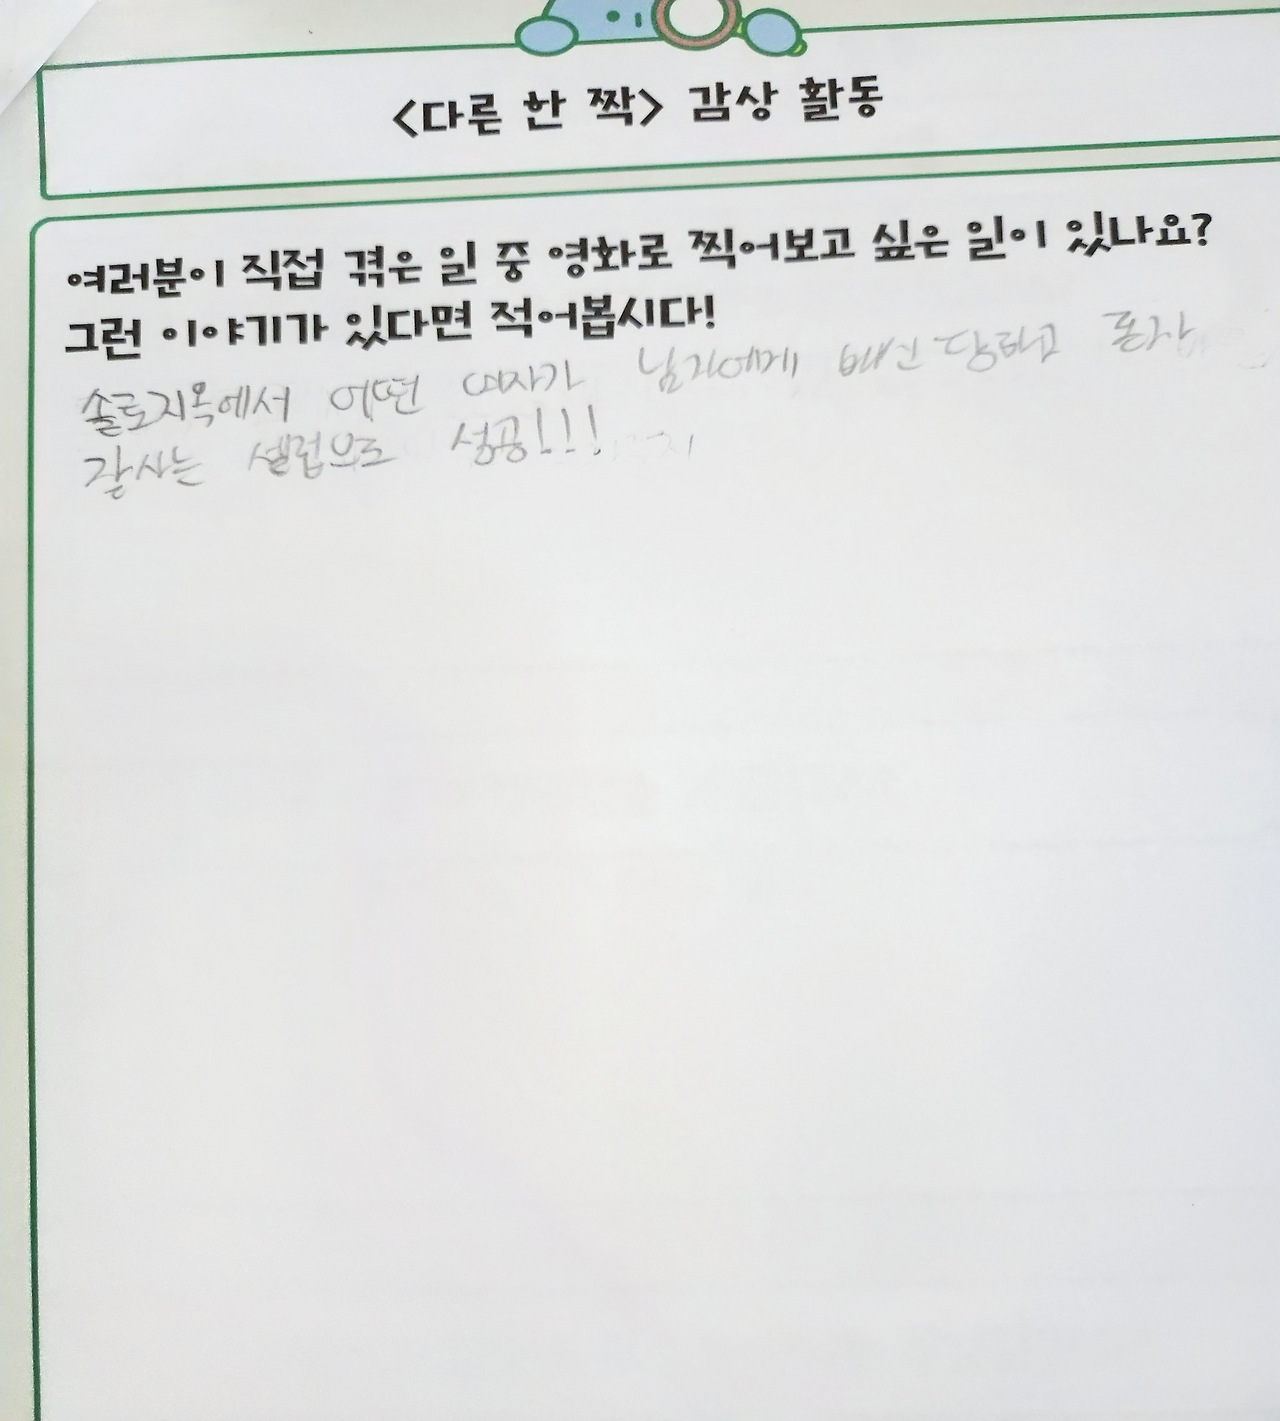 <다른 한 짝> 감상 활동
여러분이 직접 겪은 일 중 영화로 찍어보고 싶은 일이 있나요?
그런 이야기가 있다면 적어봅시다!
솔로지옥에서 어떤 여자가 남자에게 배신당하고 혼자
잘사는 셀럽으로 성공!!!